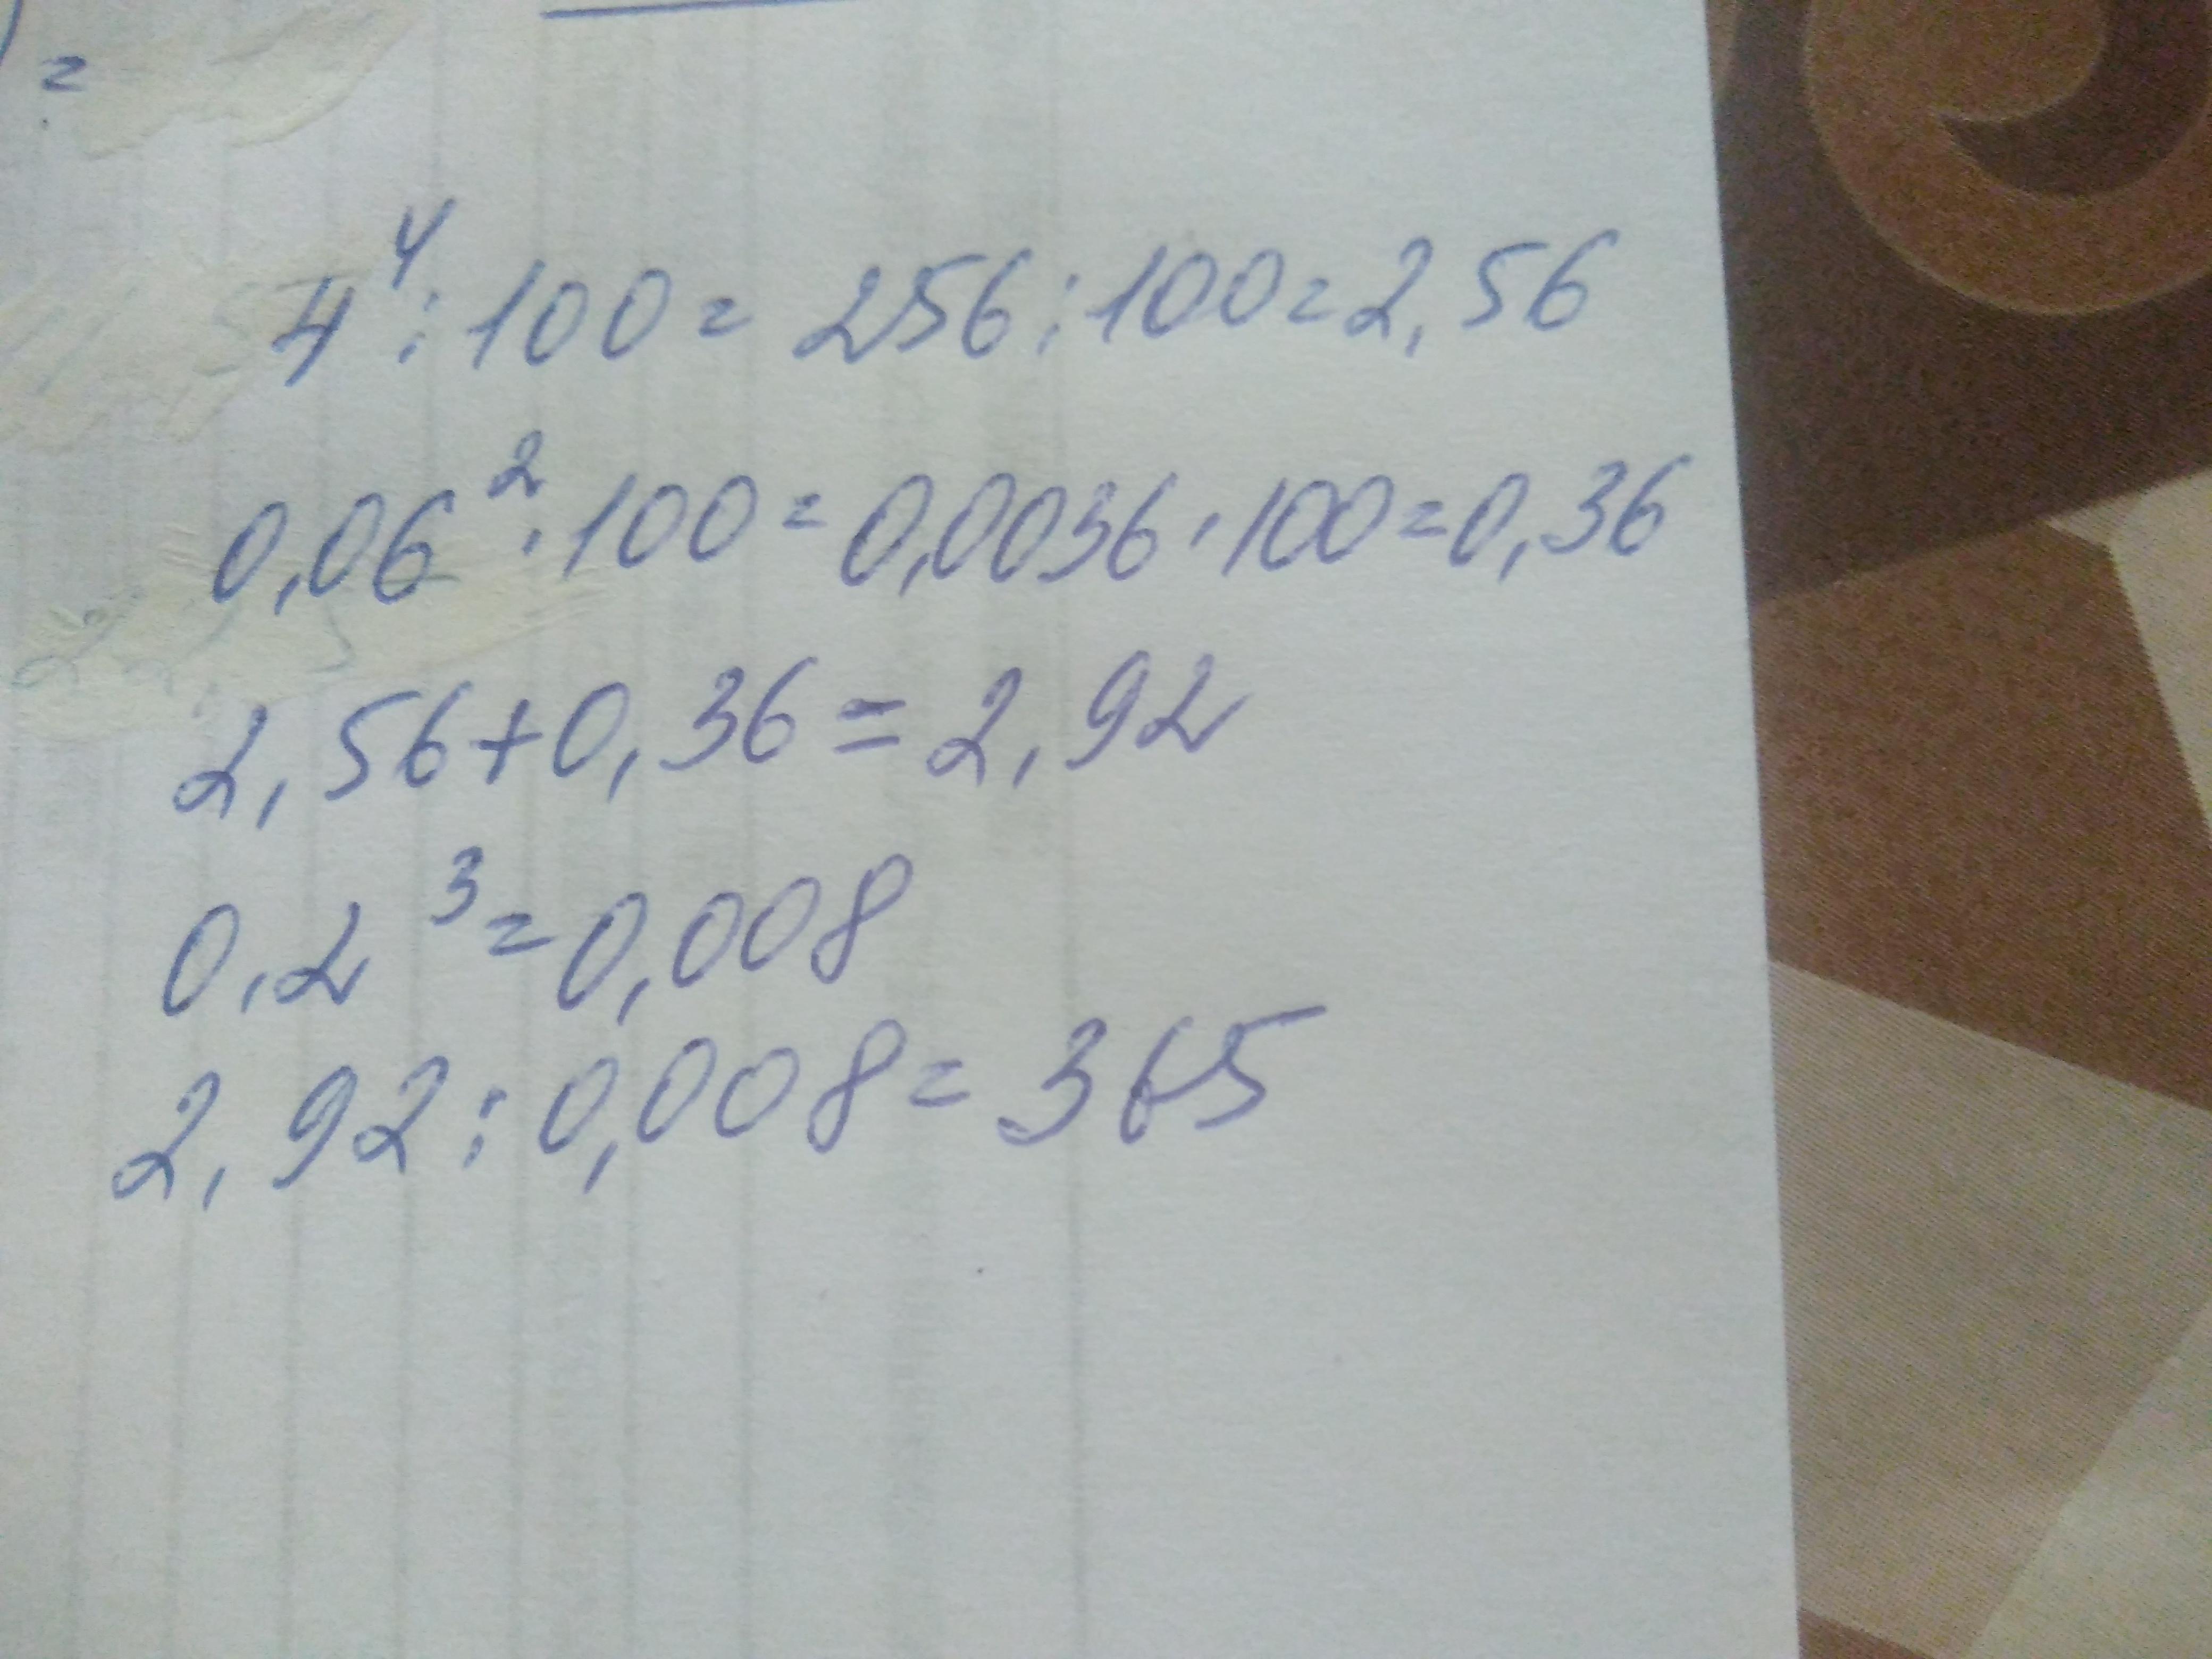 =
4⁴:100=256:100=2,56
0,06²·100=0,0036·100=0,36
2,56+0,36=2,92
0,2³=0,008
2,92:0,008=365